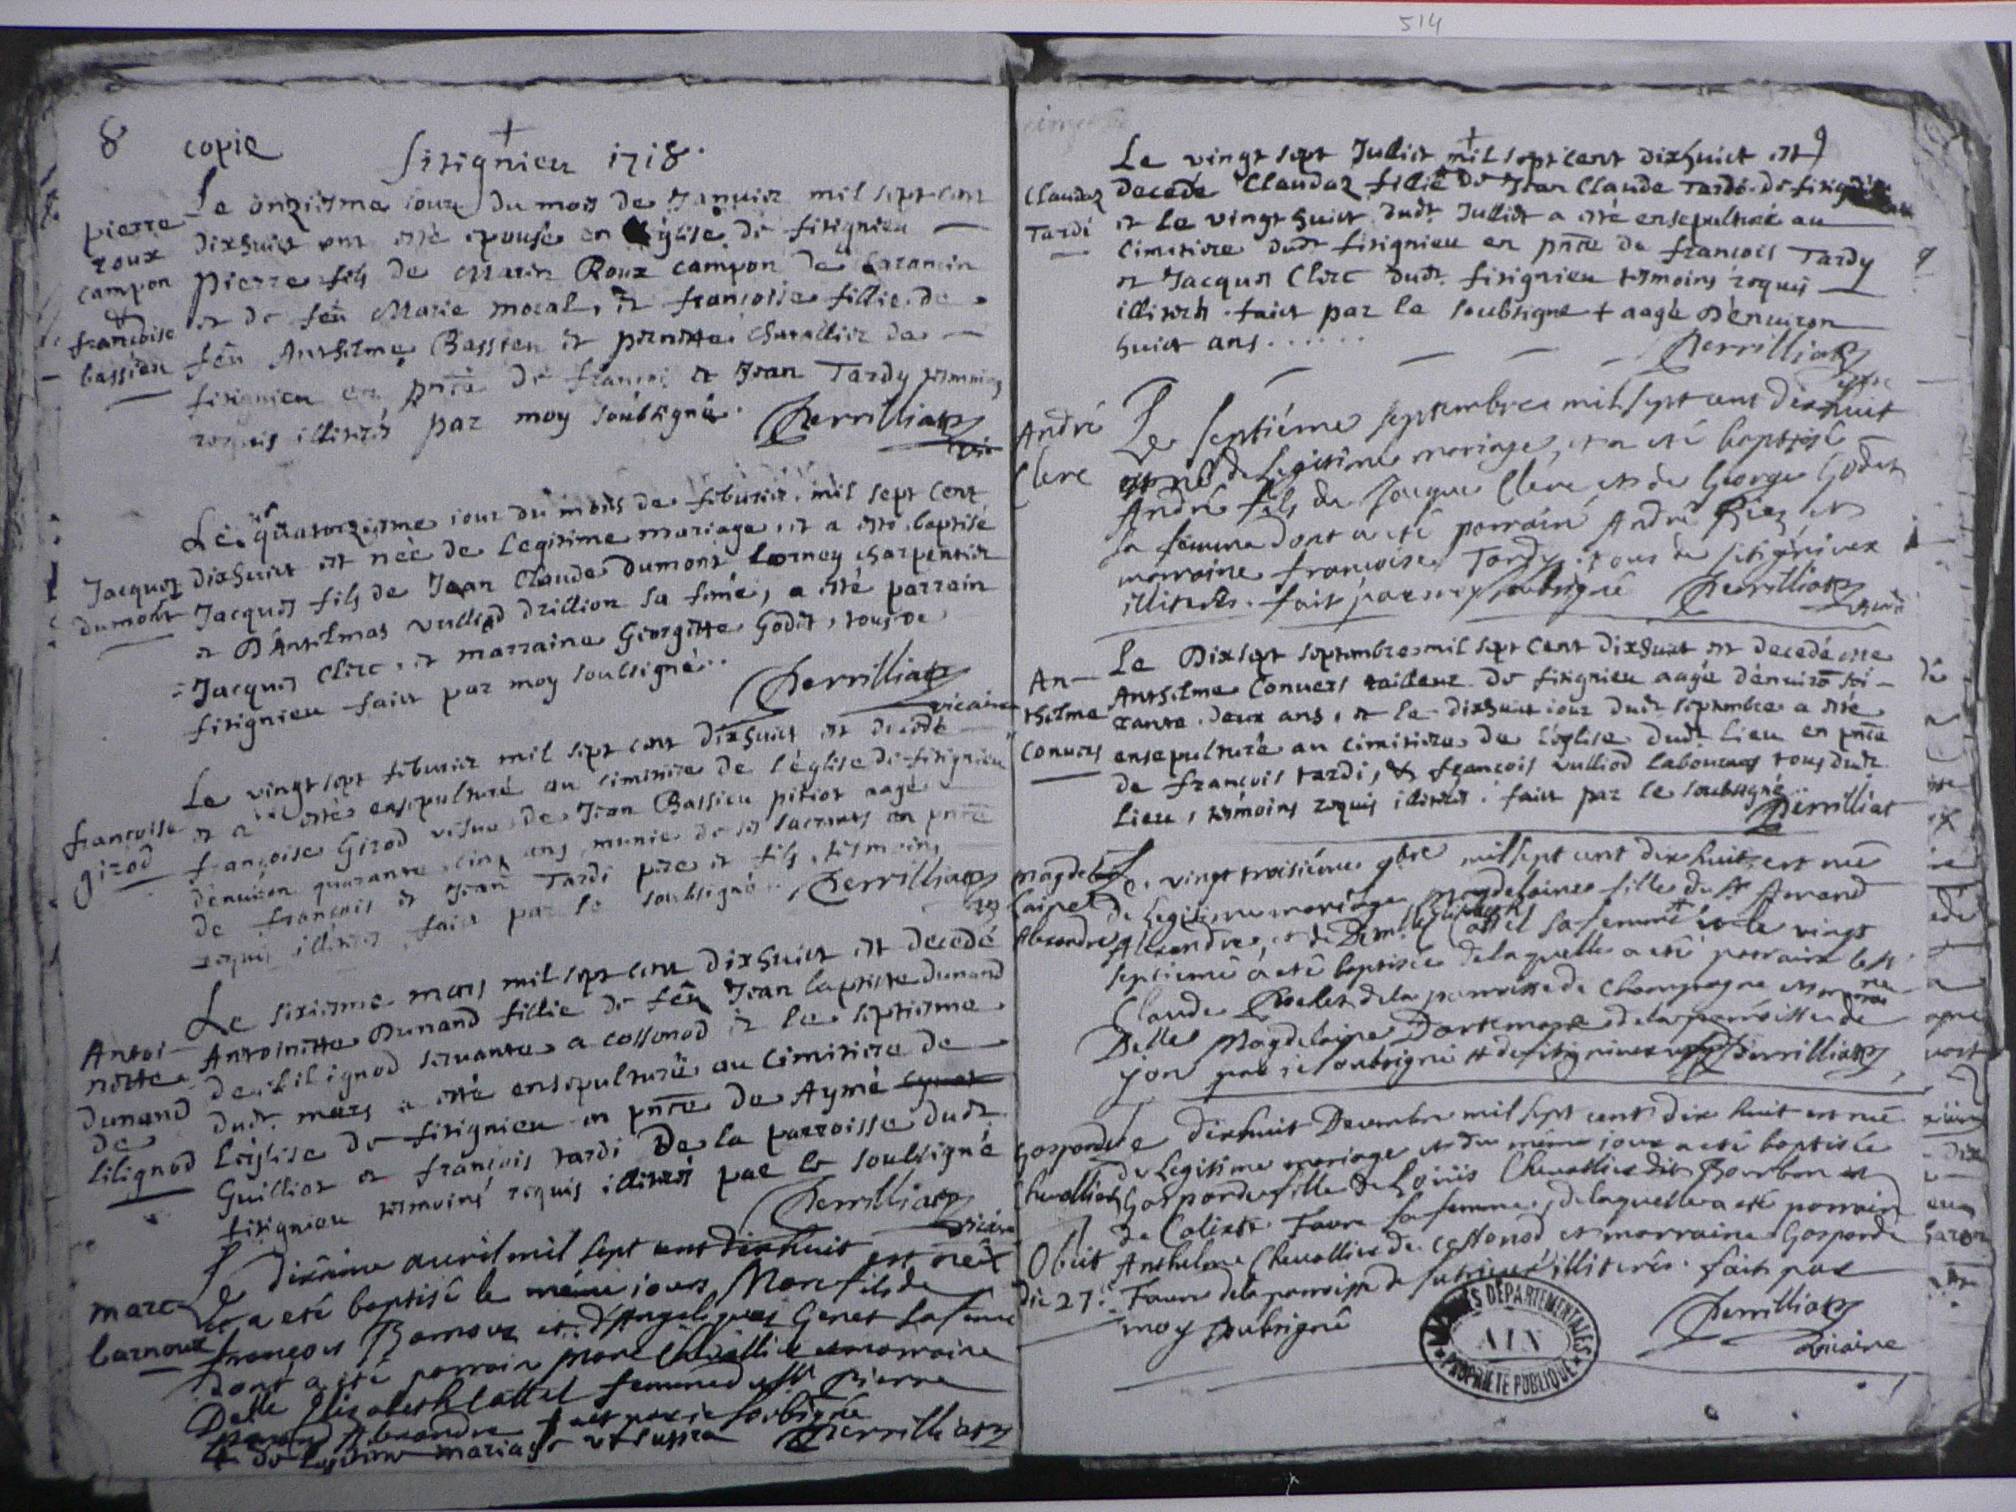 514
8 copie
+
Sitignieu 1718.
Le onziesme iour du mois de Januier mil sept cent
pierre roux campon & francoise bassieu
dixhuict ont esté epousé en Eglise de sitignieu
pierre fils de Marin Roux campon de Larancin
et de feu Marie moral, et francoise fillie de
feu Anthelme Bassieu et pernette Chevallier de
sitignieu en pnce de francois et Jean Tardy temoins
requis illiteres par moy soubsigné. Perrilliat
vic
Le quatorziesme iour du mois de feburier mil sept cent
Jacques dumont
dixhuict est néé de Legitime mariage, et a esté baptisé
Jacques fils de Jean Claude dumont Lorney charpentier
et D'Anthelmas vulliod drillion sa feme, a esté parrain
Jacques Clerc, et marraine Georgette Godet, tous de
sitignieu faict par moy soubsigné..
Perrilliat
vicaire
Le vingt sept feburier mil sept cent dixhuict est decedé
francoise girod
et a esté ensepulturé au cimitiere de l'église de sitignieu
francoise Girod vefue de Jean Bassieu pitiot aagé
denuiron quarante cinq ans munie de ses sacrements en pnce
de francois et Jean Tardi pere et fils, tesmoins
requis illiteres faict par le soubsigné. Perrilliat
Le sixiesme mars mil sept cent dixhuict est decedé
Antoinette dunand de lilignod
Antoinette Dunand fillie de feu Jean baptiste dunand
de lilignod seruante a cossonod et le septiesme
dudt mars a esté ensepulturé au Cimitiere de
Léglise de sitignieu en pnce de Aymé
Guilliot et francois tardi De la parroisse dudt
sitignieu tesmoins requis illiteres par le soubsigné
Perrilliat
vicaire
Le dixième auril mil sept cent dixhuit est né +
marc barnoux
et a eté baptisé le même jours Marc fils de
françois Barnoux et d'Angelique Genet sa feme
dont a eté parrain Marc Chevallier et marraine
Delle Elizabeth Cattel femme du Sr Pierre
Alexandre fait par ie soubsigné
+ de Legitime mariage vt supra Perrilliat
9
+
Le vingt sept Julliet mil sept cent dixhuict est
Claudaz Tardi
decedé Claudaz fillie de Jean Claude Tardi de sitignieu
et le vingt huict dudt Julliet a esté ensepulturé au
cimitiere dudt sitignieu en pnce de francois Tardy
et Jacques Clerc dudt sitignieu tesmoins requis
illiteres. faict par le soubsigné + aagé d'enuiron
huict ans......
Perrilliat
André Clerc
Le septiéme septembre mil sept cent dixhuit
est né de Legitime mariage, et a eté baptisé
André fils de Jacque Clerc et de George Godet
sa femme dont a eté parrain André Riez et
marraine françoise Tardy tous de sitignieux
illiterés. fait par moy soubsigné Perrilliat
vicaire
Le Dixsept septembre mil sept cent dixhuict est decedé
Anthelme Conuers
Anthelme Conuers tailleur de sitignieu aagé d'enuiro soi-
xante deux ans, et le dixhuict iour dudt septembre a esté
ensepulturé au cimitiere de l'église dudt Lieu en pnce
de francois tardi, & francois vulliod laboureurs tous dudt
Lieu, temoins requis illiteres. faict par le soubsigné
Perrilliat
Le vingt troisiéme 9bre mil sept cent dix huit est née
Magdelaine Alexandre
de Legitime mariage Magdelaine fille du Sr Amand
Alexandre, et de Demlle Elizabeth Cattel sa femme et le vingt
septieme a eté baptisée de laquelle a eté parrain le Sr
Claude Roelet de la parroisse de Champagne et marraine
Delle Magdelaine Dartemare de la parroisse de
yon par ie soubsigné de sitignieux Perrilliat
Le dixhuit Decembre mil sept cent dix huit est née
Gasparde Chevallier
de Legitime mariage et du même jour a eté baptisée
Gasparde fille de Loüis Chevallier dit Bourbon et
de Colette Faure sa femme, de laquelle a eté parrain
Obiit die 27.
Anthelme Chevallier de cossonod et marraine Gasparde
Faure de la parroisse de illiterés. fait par
moy soubsigné
Perrilliat
vicaire
ARCHIVES DÉPARTEMENTALES
AIN
PROPRIÉTÉ PUBLIQUE